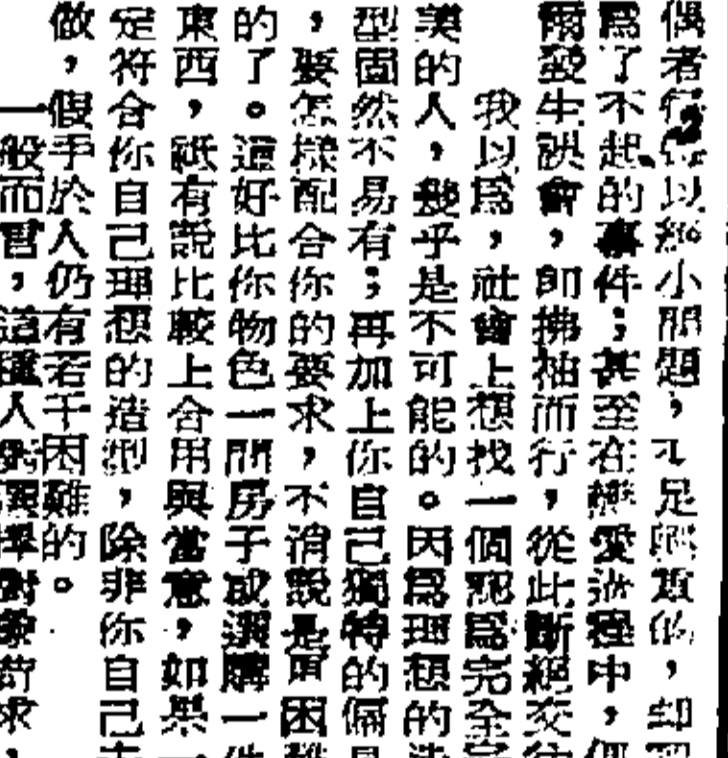 偶者行以小問題，不足興趣的，却
爲了不起的事件；甚至在戀愛旅程中，偶
爾發生誤會，即拂袖而行，從此斷絕交往
我以爲，社會上想找一個認爲完全完
美的人，幾乎是不可能的。因爲理想的造
型固然不易有；再加上你自己獨特的偏見
，要怎樣配合你的要求，不消說是更困難
的了。這好比你物色一間房子或選購一件
東西，祇有說比較上合用與當意，如果一
定符合你自己理想的造型，除非你自己去
做，假手於人仍有若干困難的。
一般而言，這種人對選擇對象苛求，